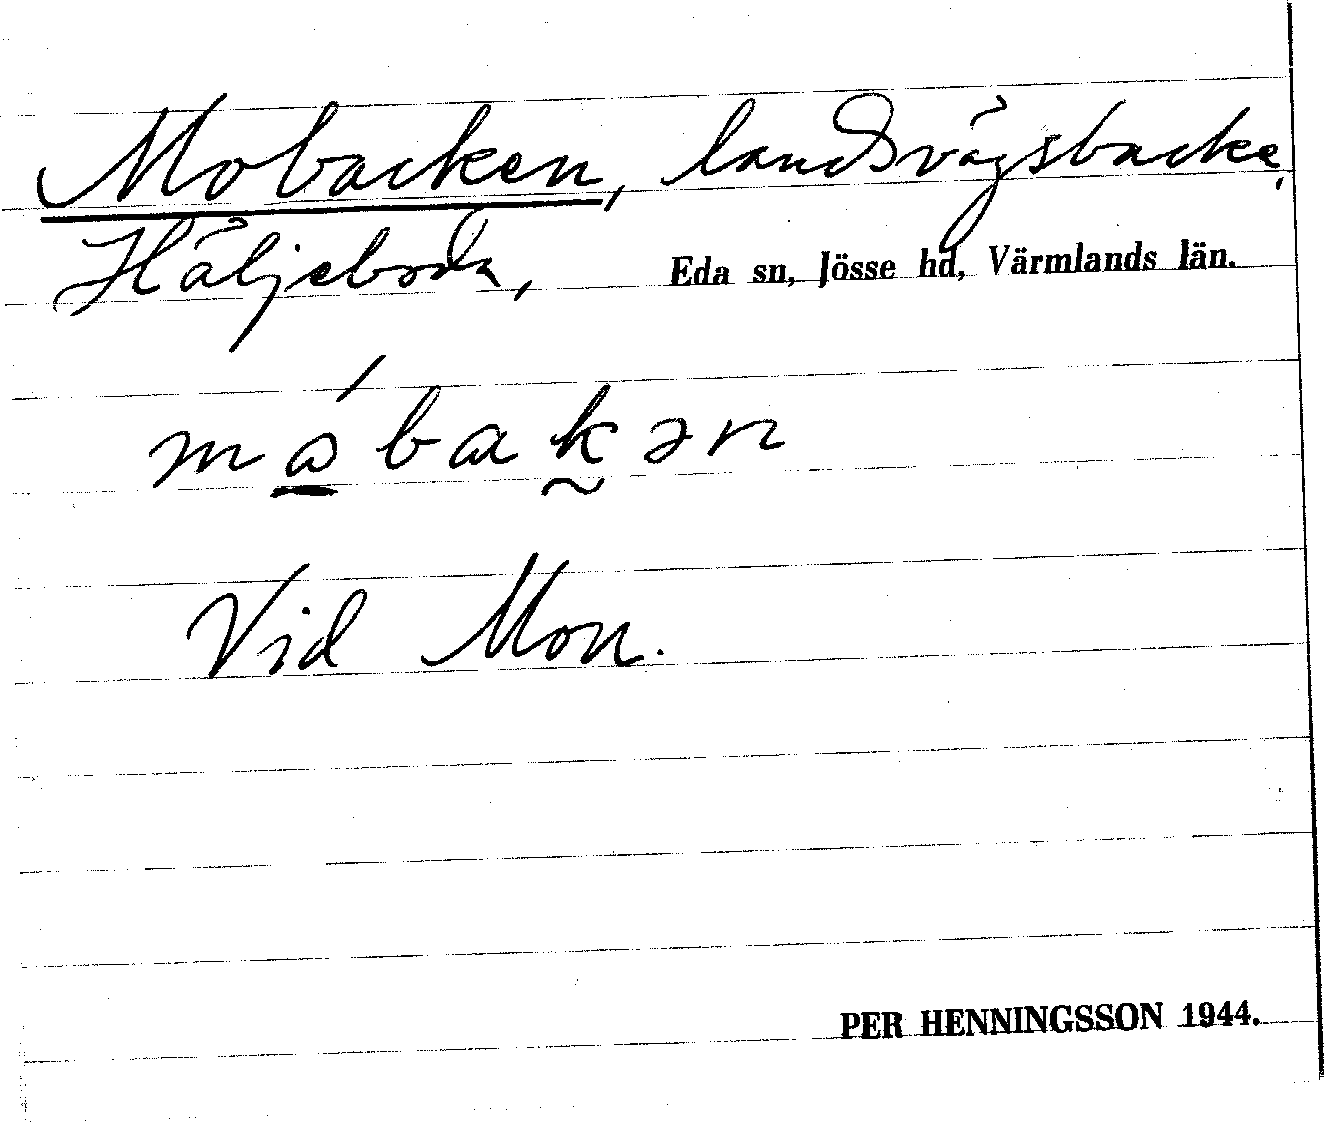 Mobacken, landsvägsbacke,
Häljeboda, Eda sn, Jösse hd, Värmlands län.
mɷ́bakən
Vid Mon.
PER HENNINGSSON 1944.